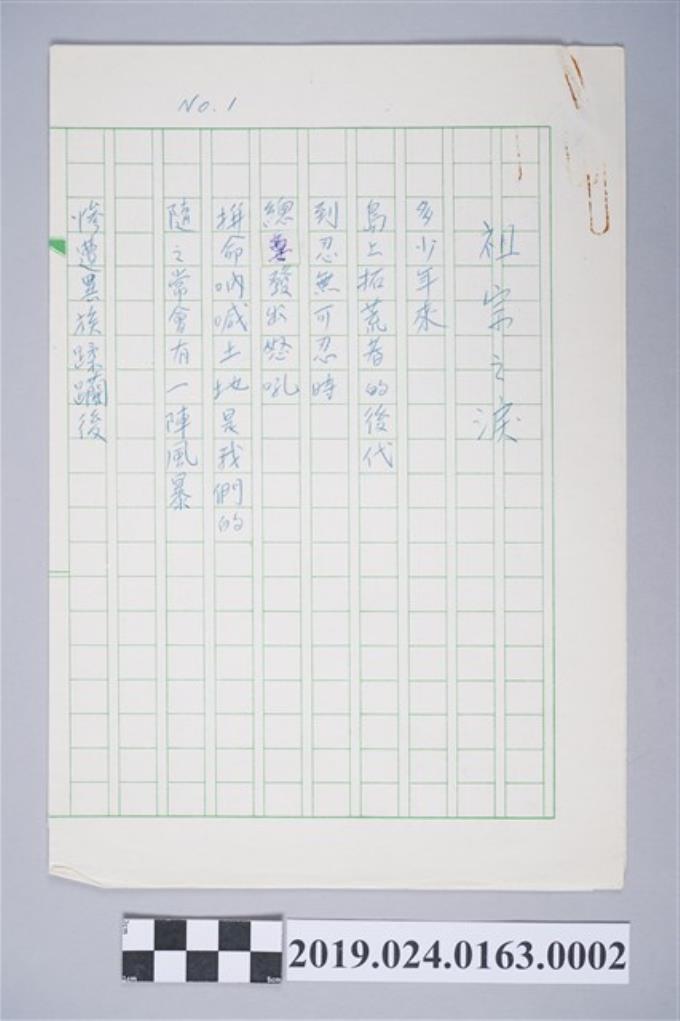 No.1
祖宗之淚
多少年來
島上拓荒者的後代
到忍無可忍時
總要發出怒吼
拼命吶喊土地是我們的
隨之常會有一陣風暴
慘遭異族蹂躪後
2019.024.0163.0002